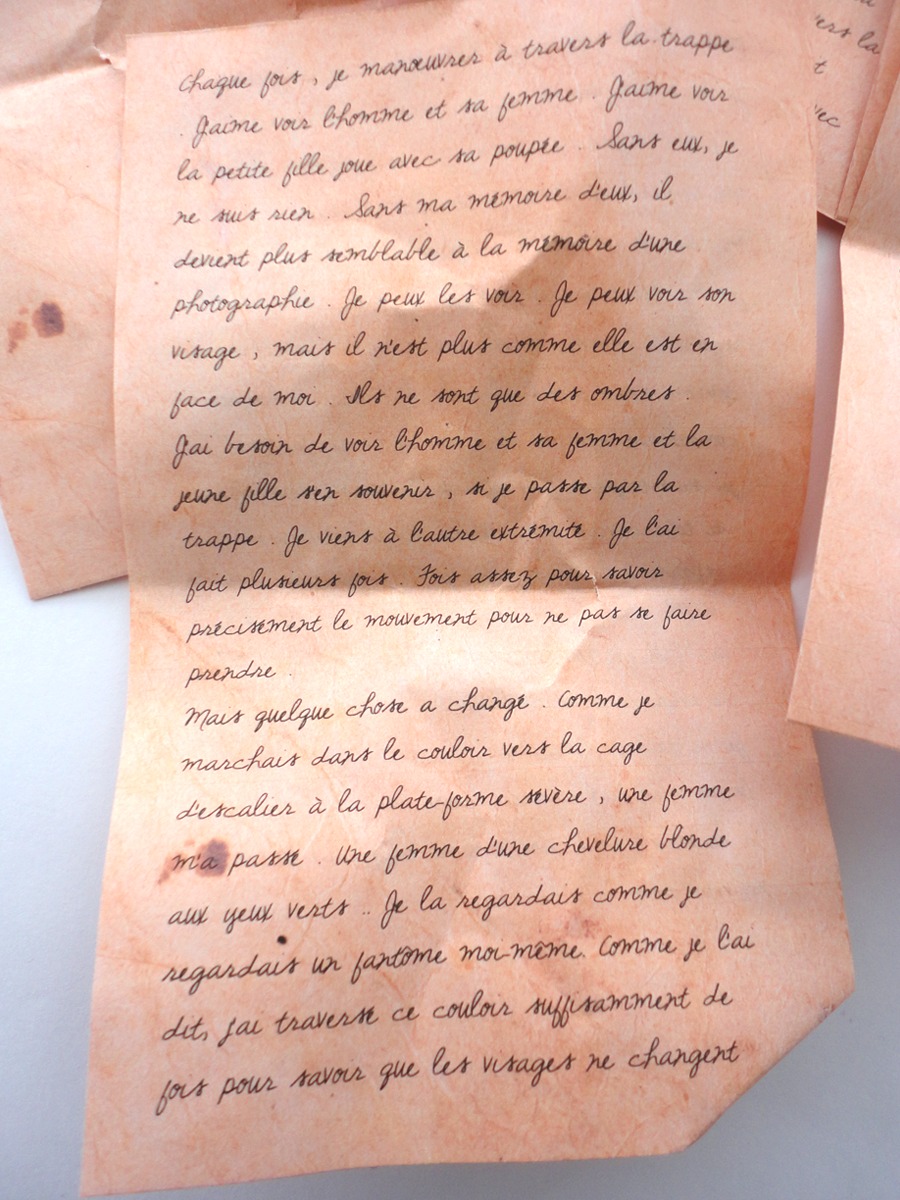 Chaque fois, je manœuvrer à travers la trappe
. J'aime voir l'homme et sa femme. J'aime voir
la petite fille joue avec sa poupée. Sans eux, je
ne suis rien. Sans ma mémoire d'eux, il
devient plus semblable à la mémoire d'une
photographie. Je peux les voir. Je peux voir son
visage, mais il n'est plus comme elle est en
face de moi. Ils ne sont que des ombres.
J'ai besoin de voir l'homme et sa femme et la
jeune fille s'en souvenir, si je passe par la
trappe. Je viens à l'autre extrémité. Je l'ai
fait plusieurs fois. Fois assez pour savoir
précisément le mouvement pour ne pas se faire
prendre.
Mais quelque chose a changé. Comme je
marchais dans le couloir vers la cage
d'escalier à la plate-forme sévère, une femme
m'a passé. Une femme d'une chevelure blonde
aux yeux verts.. Je la regardais comme je
regardais un fantôme moi-même. Comme je l'ai
dit, j'ai traversé ce couloir suffisamment de
fois pour savoir que les visages ne changent
ers la
t
vec